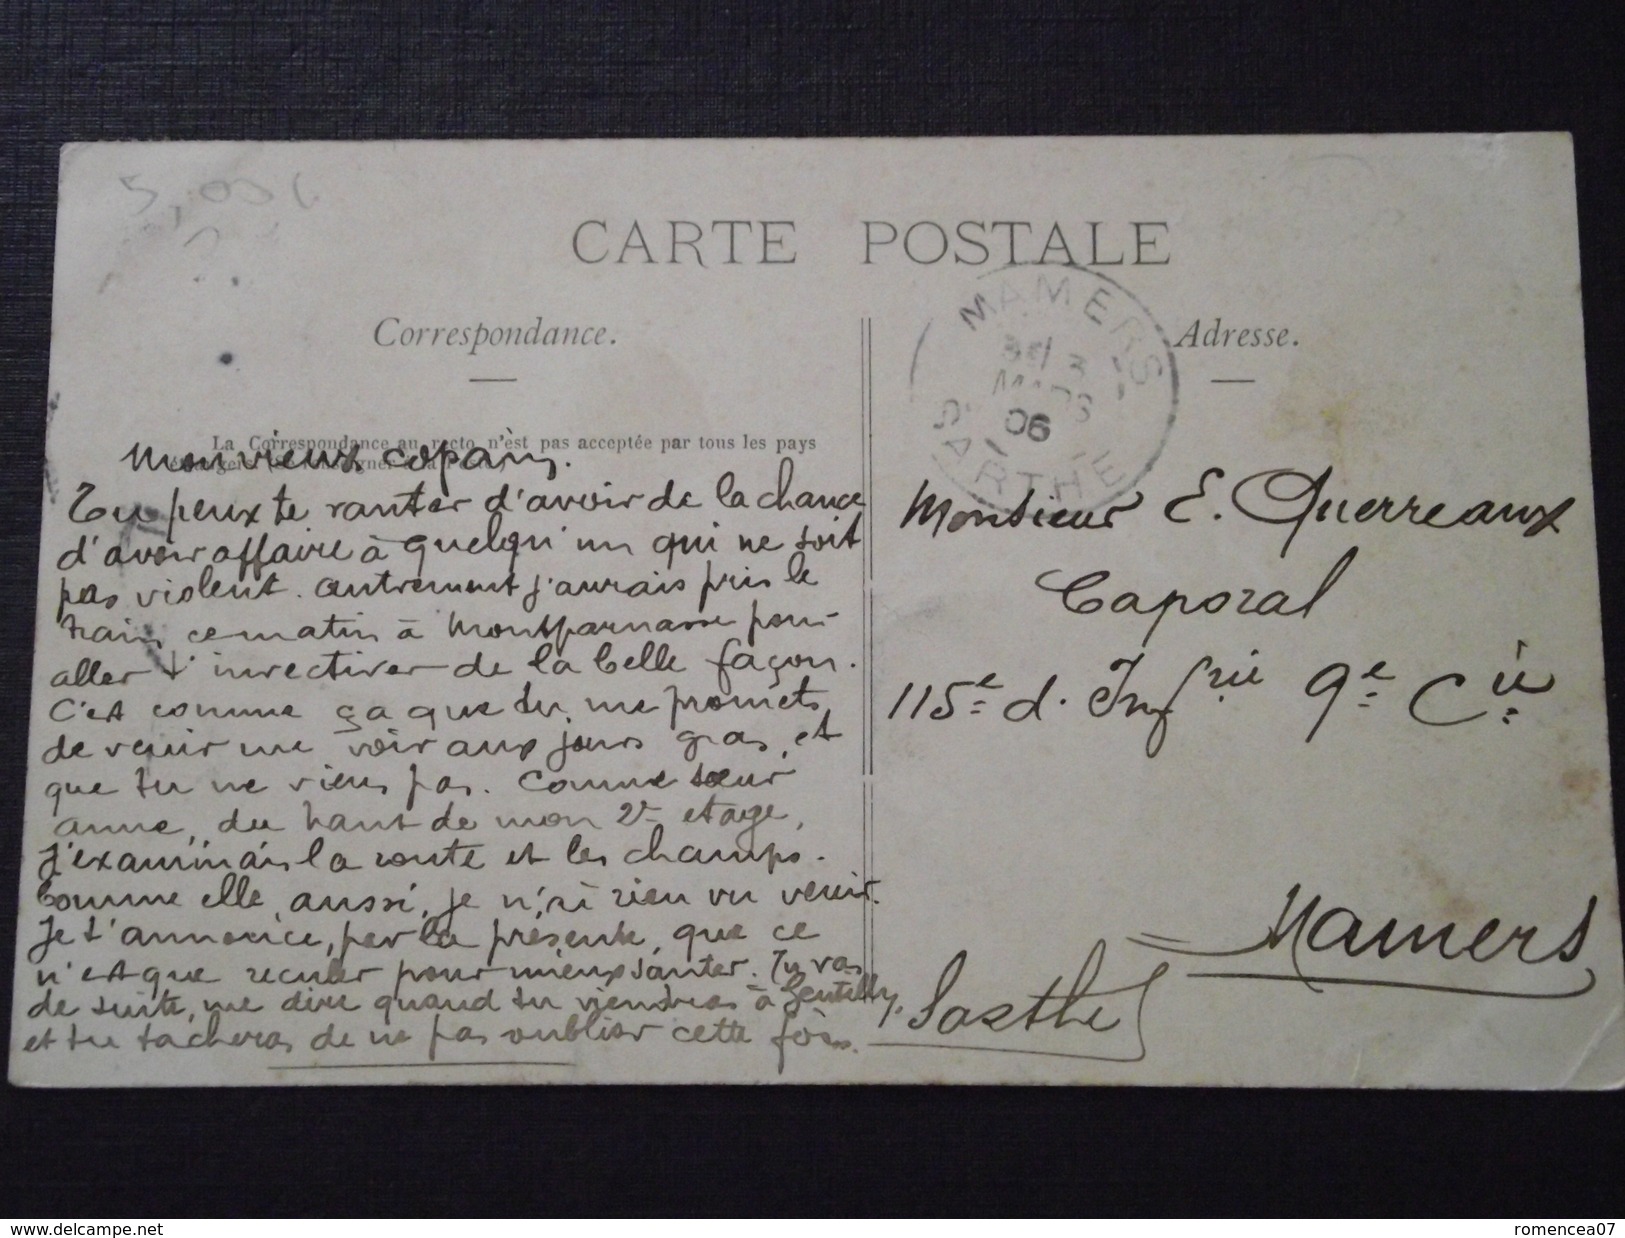 CARTE POSTALE
Correspondance.
Adresse.
La Correspondance au recto n'est pas acceptée par tous les pays
MAMERS
06
SARTHE
Mon vieux copain.
Tu peux te vanter d'avoir de la chance
d'avoir affaire à quelqu'un qui ne soit
pas violent. autrement j'aurais pris le
train ce matin à Montparnasse pour
aller t'invectiver de la belle façon.
C'est comme ça que tu me promets,
de venir me voir aux jours gras, et
que tu ne viens pas. Comme sœur
anne, du haut de mon 2e etage,
j'examinais la route et les champs.
Comme elle, aussi, je n'ai rien vu venir.
Je t'annonce, par la présente, que ce
n'est que reculer pour mieux sauter. Tu vas
de suite, me dire quand tu viendras à Gentilly,
et tu tacheras de ne pas oublier cette fois.
Monsieur E. Querreaux
Caporal
115e d'Infrie 9e Cie
Mamers
Sarthe
www.delcampe.net
romencea07